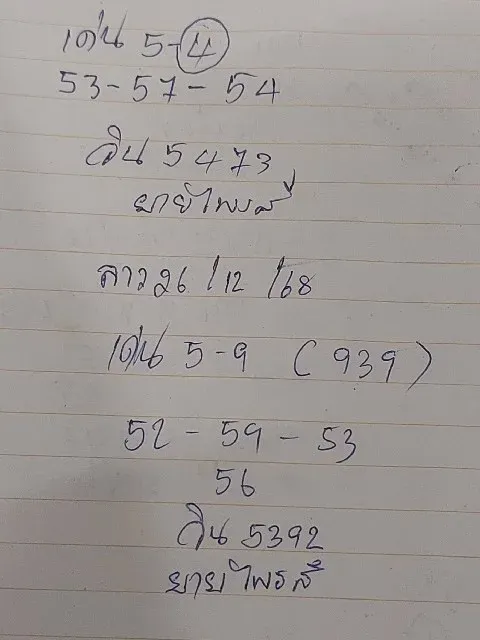 เด่น 5-4
53-57-54
วิน 5473
ยายไพรสี
ลาว 26/12/68
เด่น 5-9 (939)
52-59-53
56
วิน 5392
ยายไพรสี